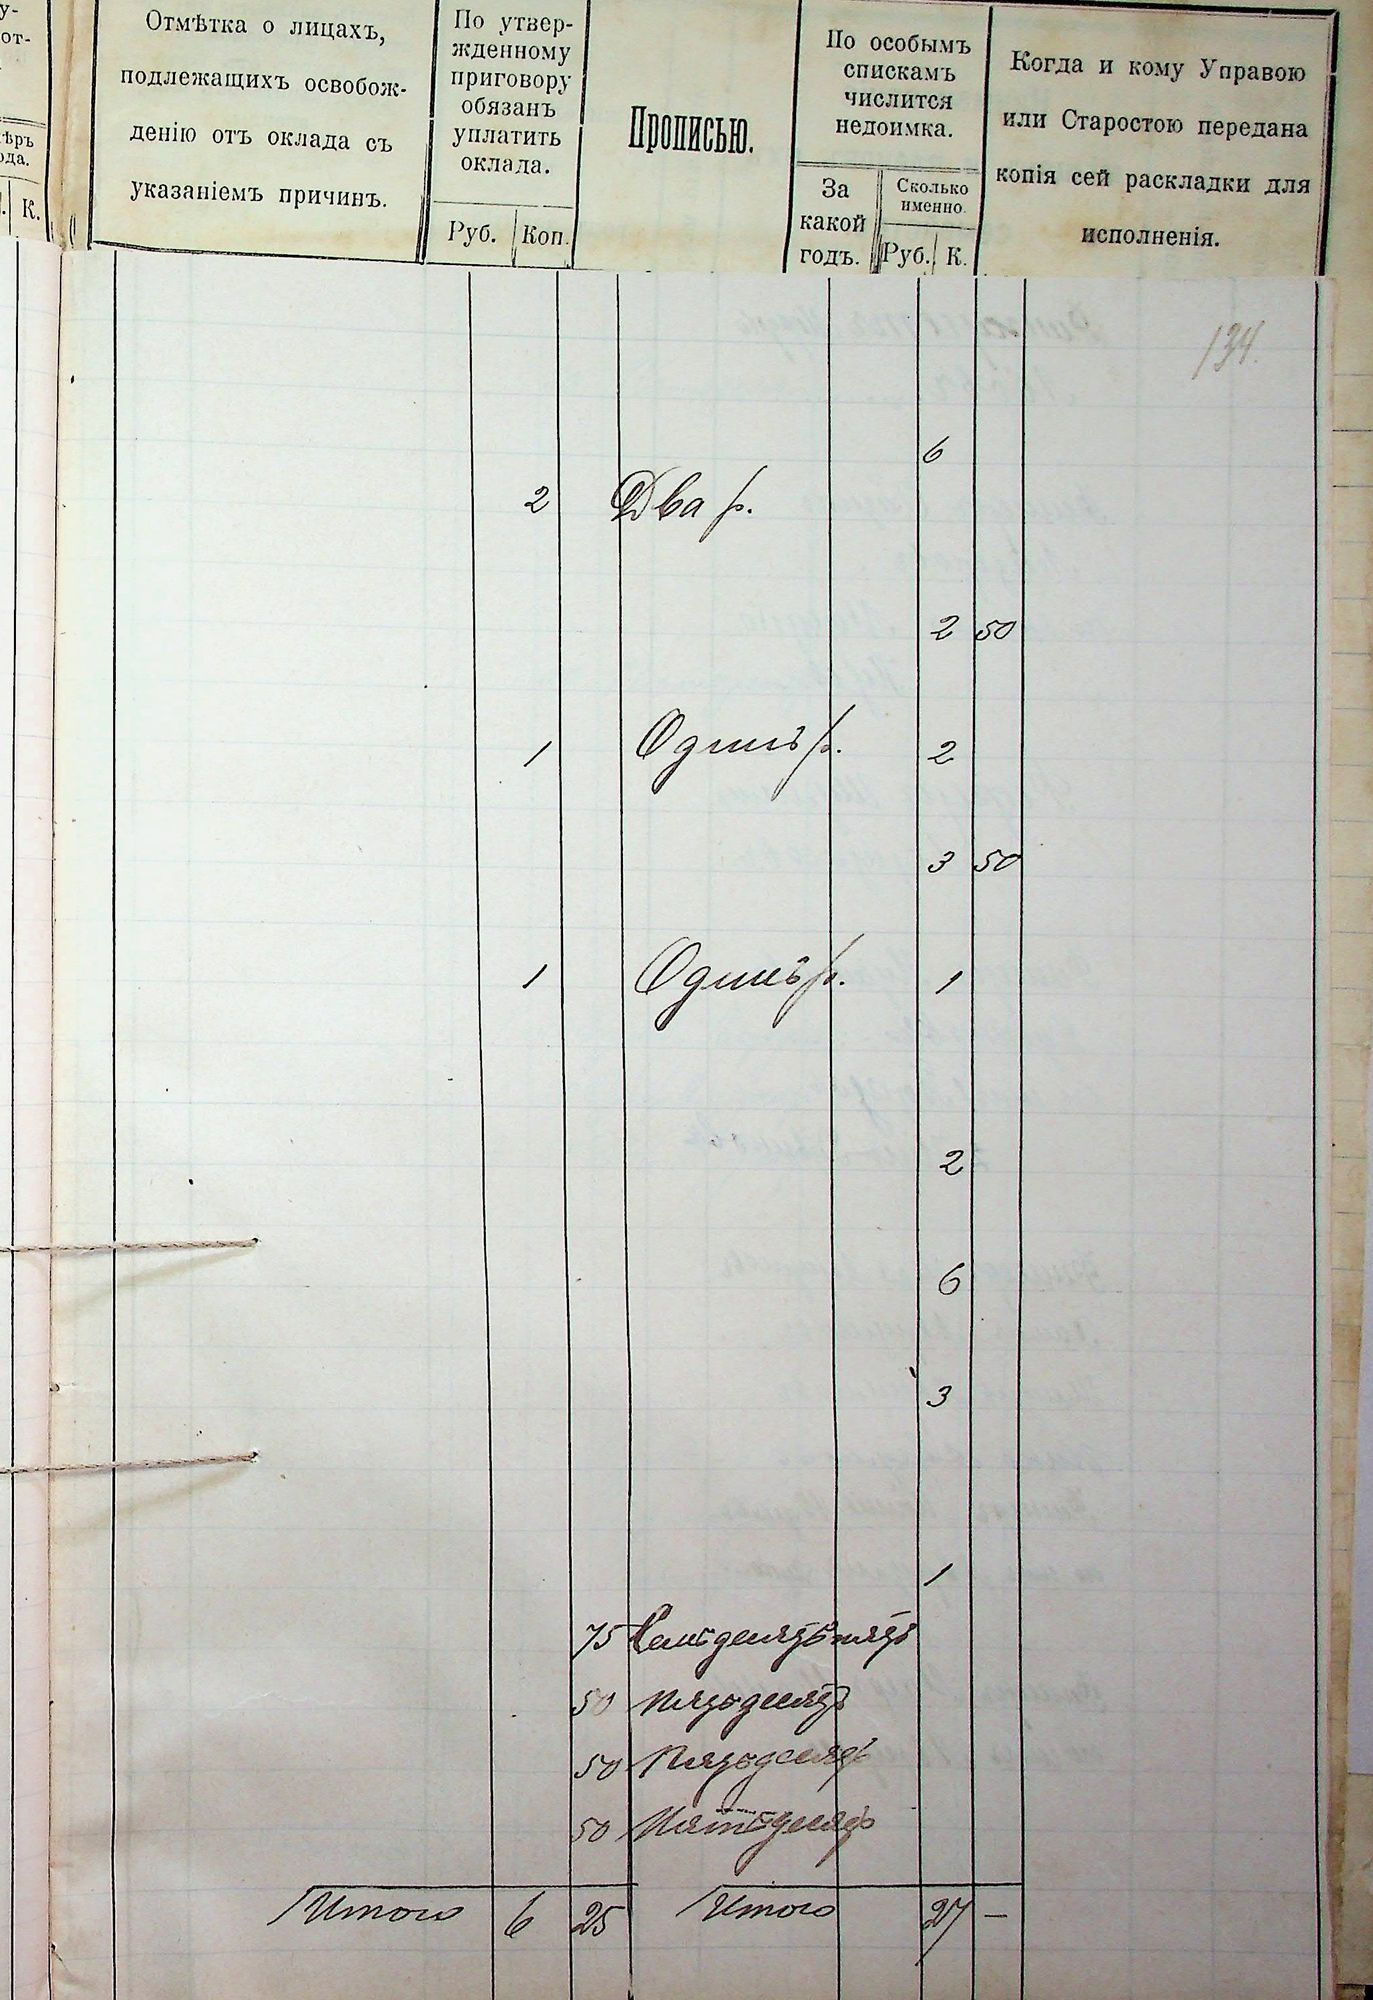 Отмѣтка о лицахъ,
подлежащихъ освобож-
денію отъ оклада съ
указаніемъ причинъ.
По утвер-
жденному
приговору
обязанъ
уплатить
оклада.
Руб. Коп.
Прописью.
По особымъ
спискамъ
числится
недоимка.
За
какой
годъ.
Сколько
именно.
Руб. К.
Когда и кому Управою
или Старостою передана
копія сей раскладки для
исполненія.
у-
от-
ѣръ
ода.
К.
134.
6
2 Два р.
2 50
1 Одинъ р. 2
3 50
1 Одинъ р. 1
2
6
3
1
75
50 Пятьдесятъ
50 Пятьдесятъ
50 Пятьдесятъ
Итого 6 25 Итого 27 —